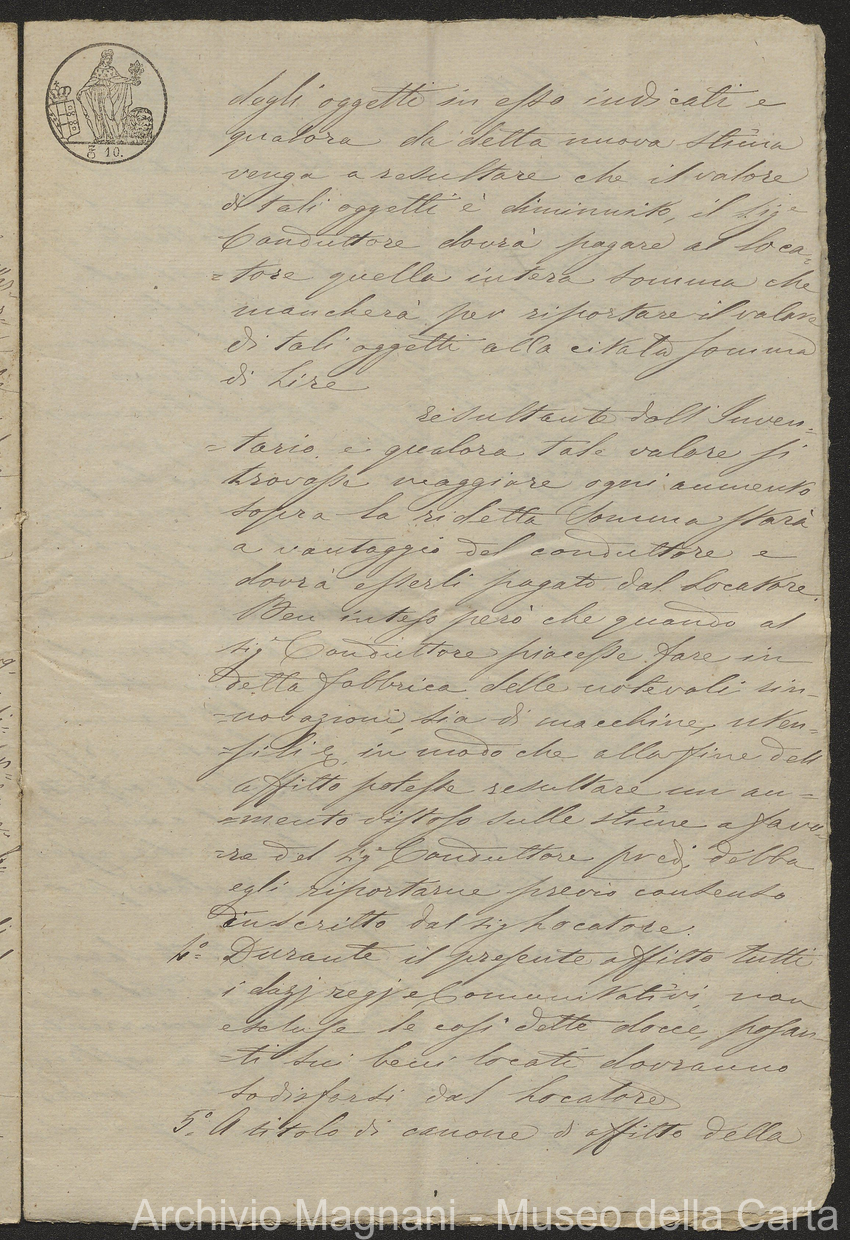 CE 10.
dagli oggetti in esso indicati e
qualora da detta nuova stima
venga a resultare che il valore
di tali oggetti è diminuito, il Sigre
Conduttore dovrà pagare al Loca-
=tore quella intera somma che
mancherà per riportare il valore
di tali oggetti alla citata somma
di Lire
resultante dall'Inven-
=tario, e qualora tale valore si
trovasse maggiore ogni aumento
sopra la ridetta Somma starà
a vantaggio del conduttore e
dovrà esserli pagato dal Locatore.
Ben inteso però che quando al
Sigr Conduttore piacesse fare in
detta fabbrica delle notevoli rin-
=novazioni, sia di macchine, uten-
=sili &, in modo che alla fine dell
affitto potesse resultare un au-
=mento vistoso sulle stime a favo-
=re del Sigr Conduttore pred., debba
egli riportarne previo consenso
in scritto dal Sig Locatore.
4.° Durante il presente affitto tutti
i dazj regj e Comunitativi, non
escluse le così dette docce, posan-
=ti sui beni locati dovranno
sodisfarsi dal Locatore
5.° A titolo di canone d'affitto della
Archivio Magnani - Museo della Carta